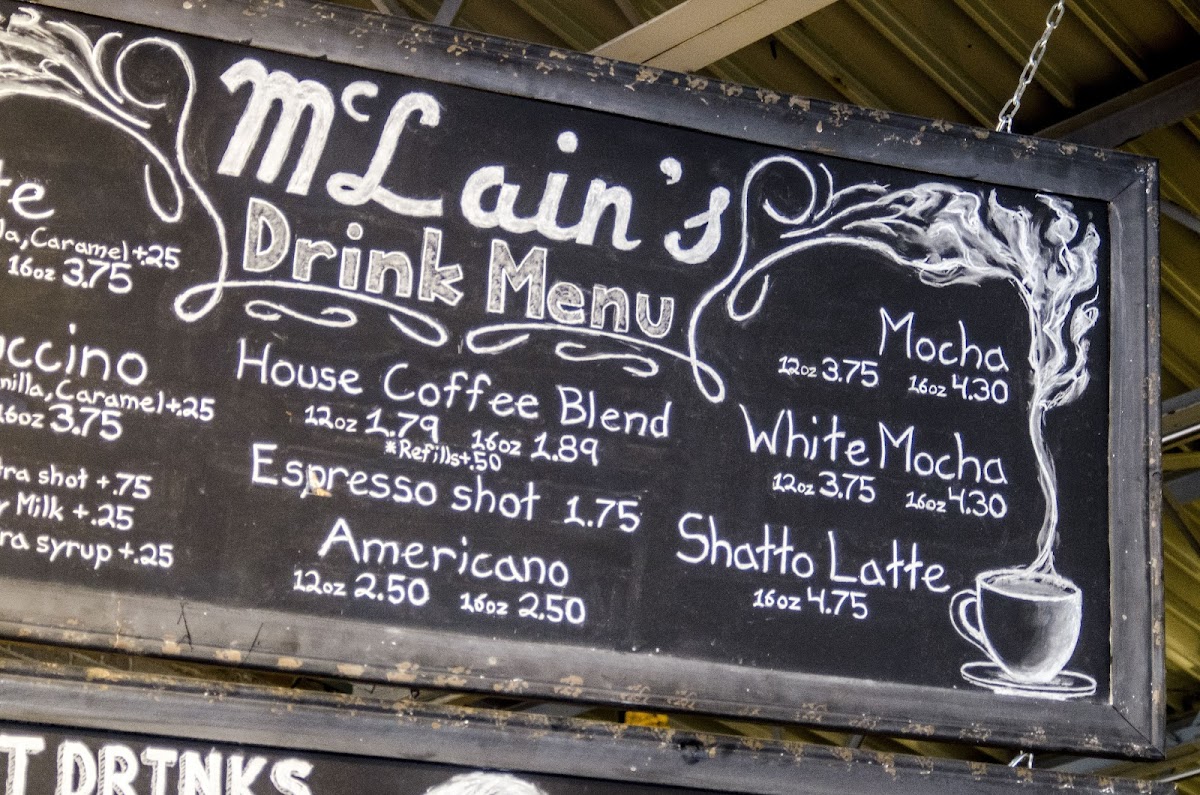 McLain's
Drink Menu
te
la, Caramel +.25
16oz 3.75
ccino
nilla, Caramel +.25
16oz 3.75
tra shot +.75
y Milk +.25
ra syrup +.25
House Coffee Blend
12oz 1.79 16oz 1.89
*Refills +.50
Espresso shot 1.75
Americano
12oz 2.50 16oz 2.50
Mocha
12oz 3.75 16oz 4.30
White Mocha
12oz 3.75 16oz 4.30
Shatto Latte
16oz 4.75
T DRINKS